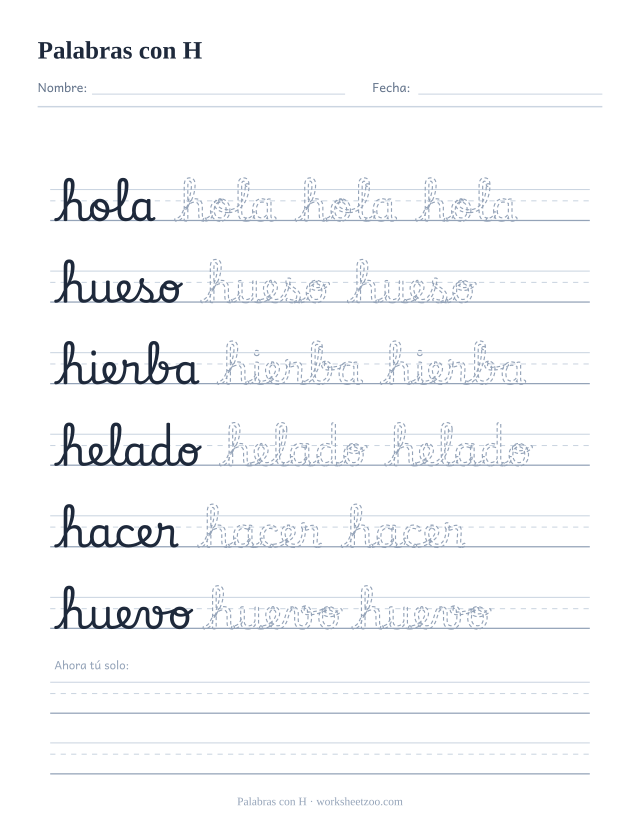 Palabras con H
Nombre: Fecha:
hola hola hola hola
hueso hueso hueso
hierba hierba hierba
helado helado helado
hacer hacer hacer
huevo huevo huevo
Ahora tú solo:
Palabras con H · worksheetzoo.com